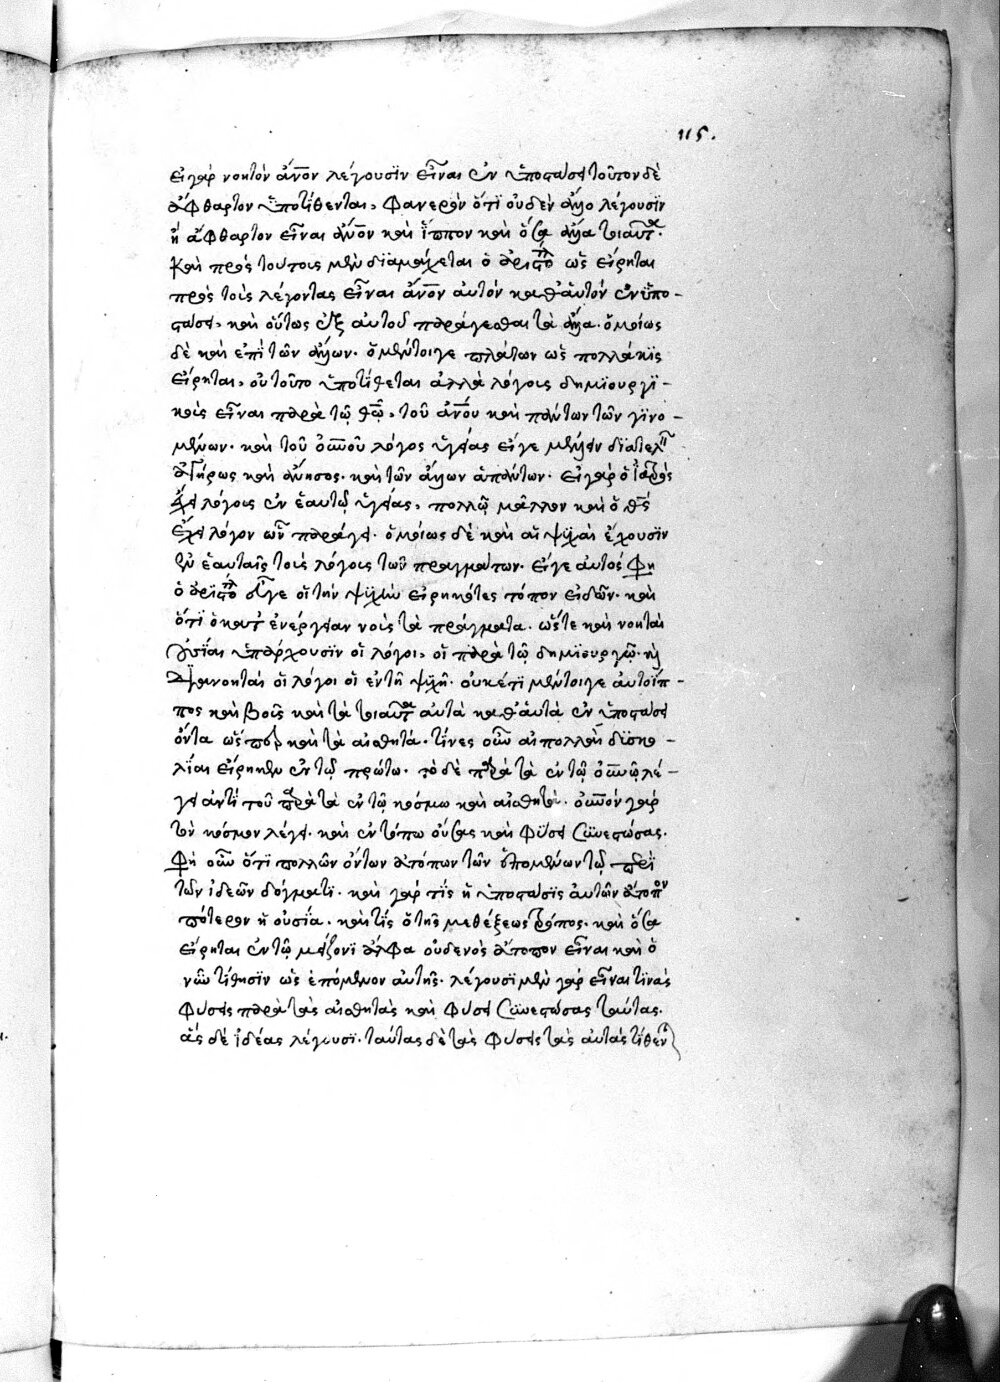 115.
εἰ γὰρ νοητὸν ἄνον λέγουσϊν εἶναι ἐν ὑποστάσει τοῦτον δὲ
ἄφθαρτον ὑποτίθενται, φανερὸν ὅτι οὐδὲν ἄλλο λέγουσϊν
ἢ ἄφθαρτον εἶναι ἄνον καὶ ἵππον καὶ ὅσα ἄλλα τοιαῦτα.
καὶ πρὸς τούτους μὲν διαμάχεται ὁ ἀριστο ὡς εἴρηται
πρὸς τοὺς λέγοντας εἶναι ἄνον αὐτὸν καθ' αὑτὸν ἐν ὑπο-
στάσει, καὶ οὕτως ἐξ αὐτοῦ παράγεσθαι τὰ ἄλλα. ὁμοίως
δὲ καὶ ἐπὶ τῶν ἄλλων. ὁ μέντοιγε πλάτων ὡς πολλάκις
εἴρηται, οὐ τοῦτο ὑποτίθεται ἀλλὰ λόγους δημϊουργϊ-
κοὺς εἶναι παρὰ τῷ θῶ, τοῦ ἄνου καὶ πάντων τῶν γϊνο-
μένων. καὶ τοῦ οὐνοῦ λόγος ὑγείας εἴγε μένει διατελ
ἀγήρως καὶ ἄνοσος. καὶ τῶν ἄλλων ἁπάντων. εἰ γὰρ ὁ ἰατρὸς
ἔχει λόγους ἐν ἑαυτῷ ὑγείας, πολλῷ μᾶλλον καὶ ὁ θς
ἔχει λόγον ὧν παράγει. ὁμοίως δὲ καὶ αἱ ψυχαὶ ἔχουσϊν
ἐν ἑαυταῖς τοὺς λόγους τῶν πραγμάτων. εἴγε αὐτός φη
ὁ ἀριστο εὖγε οἱ τὴν ψυχὴν εἰρηκότες τόπον εἰδῶν. καὶ
ὅτι ὁ κατ' ἐνέργειαν νοῦς τὰ πράγματα. ὥστε καὶ νοηταὶ
οὐσίαι ὑπάρχουσϊν οἱ λόγοι, οἱ παρὰ τῷ δημϊουργῷ. καὶ
διανοηταὶ οἱ λόγοι οἱ ἐν τῇ ψυχῇ. οὐκέτι μέντοιγε αὐτοίπ-
πος καὶ βοῦς καὶ τὰ τοιαῦτα αὐτὰ καθ' αὑτὰ ἐν ὑποστάσει
ὄντα ὥσπερ καὶ τὰ αἰσθητά. τίνες οὖν αἱ πολλαὶ δϊσκο-
λίαι εἴρηκεν ἐν τῷ πρώτω. τὸ δὲ παρὰ τὰ ἐν τῷ οὐνῷ λέ-
γει ἀντὶ τοῦ παρὰ τὰ ἐν τῷ κόσμω καὶ αἰσθητά. οὐνὸν γὰρ
τὸν κόσμον λέγει. καὶ ἐν τόπω οὔσας καὶ φύσει συνεστώσας.
φη οὖν ὅτι πολλῶν ὄντων ἀτόπων τῶν ἑπομένων τῷ περὶ
τῶν ἰδεῶν δόγματι. καὶ γὰρ τίς ἡ ὑπόστασις αὐτῶν ἄτοπον
πότερον ἡ οὐσία. καὶ τίς ὁ τῆς μεθέξεως τρόπος. καὶ ὅσα
εἴρηται ἐν τῷ μείζονι ἄλφα οὐδενὸς ἄτοπον εἶναι καὶ ὃ
νῦν τίθησϊν ὡς ἑπόμενον αὐτῆς. λέγουσι μὲν γὰρ εἶναι τϊνὰς
φύσεις παρὰ τὰς αἰσθητὰς καὶ φύσει συνεστώσας ταύτας.
ἃς δὲ ἰδέας λέγουσϊ. ταύτας δὲ τὰς φύσεις τὰς αὐτὰς τίθεν